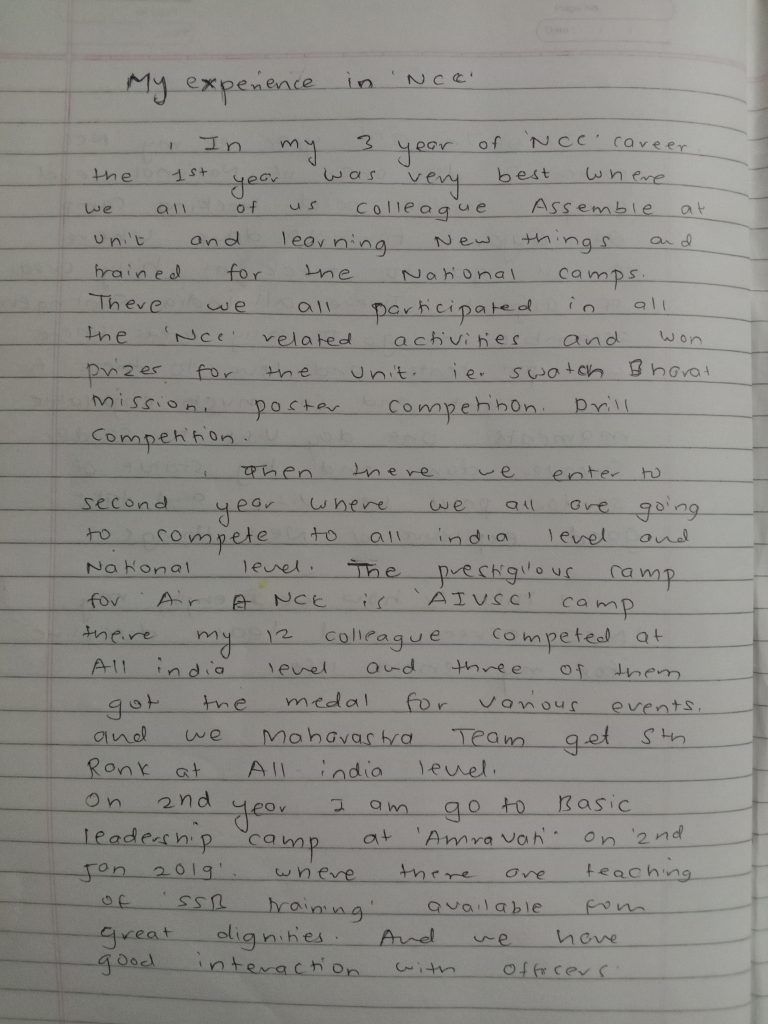 My experience in 'NCC'
In my 3 year of 'NCC' career
the 1st year was very best where
we all of us colleague Assemble at
unit and learning New things and
trained for the National camps.
There we all participated in all
the 'NCC' related activities and won
prizes for the unit. i.e. swatch Bharat
mission, poster competition. Drill
competition.
Then there we enter to
second year where we all are going
to compete to all india level and
National level. The prestigious camp
for Air NCC is 'AIVSC' camp
there my 12 colleague competed at
All india level and three of them
got the medal for various events.
and we Maharastra Team get 5th
Rank at All india level.
On 2nd year I am go to Basic
leadership camp at 'Amravati' on '2nd
Jan 2019'. where there are teaching
of 'SSB training' available from
great dignities. And we have
good interaction with officers.